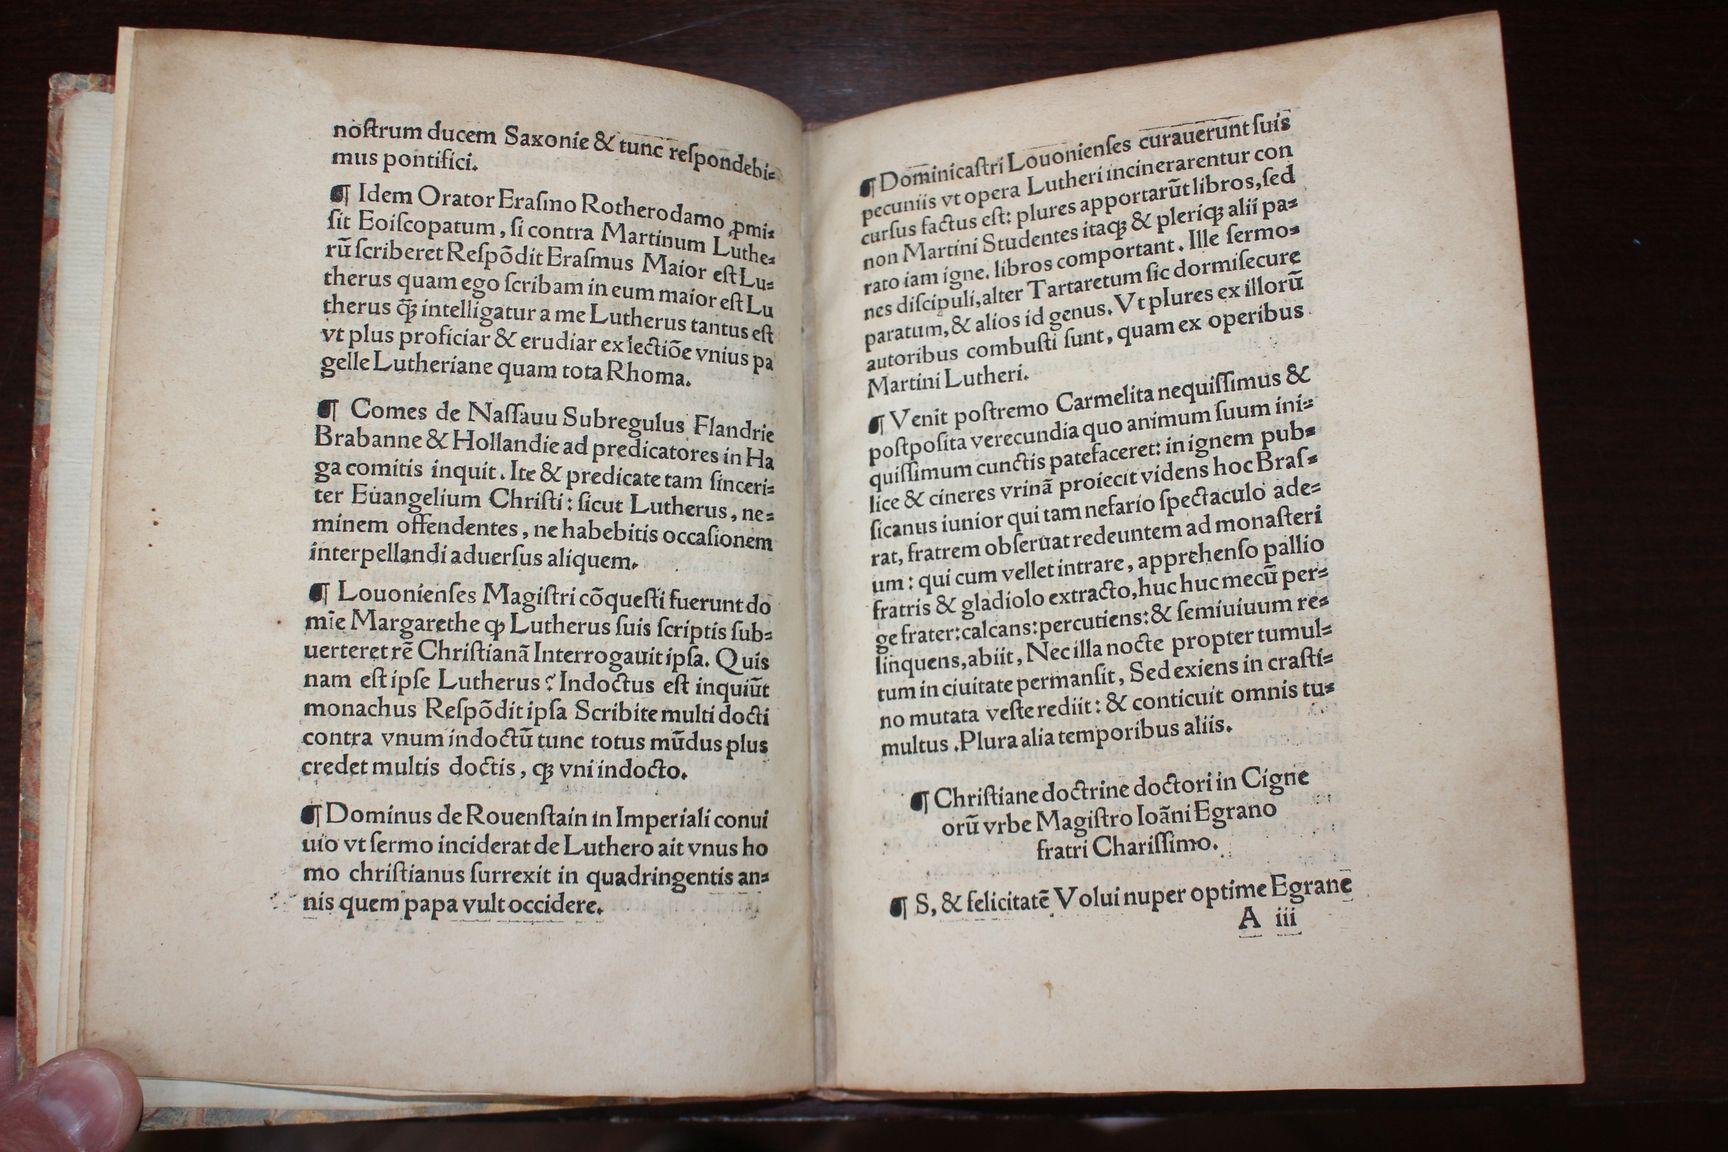 noſtrum ducem Saxonie & tunc reſpondebi⸗
mus pontifici.
¶ Idem Orator Eraſino Rotherodamo ꝓmi⸗
ſit Eoiſcopatum, ſi contra Martinum Luthe⸗
rū ſcriberet Reſpōdit Eraſmus Maior eſt Lu⸗
therus quam ego ſcribam in eum maior eſt Lu
therus ꝙ̄ intelligatur a me Lutherus tantus eſt
vt plus proficiar & erudiar ex lectiōe vnius pa
gelle Lutheriane quam tota Rhoma.
¶ Comes de Naſſauu Subregulus Flandrie
Brabanne & Hollandie ad predicatores in Ha
ga comitis inquit. Ite & predicate tam ſinceri⸗
ter Euangelium Chriſti: ſicut Lutherus, ne⸗
minem offendentes, ne habebitis occaſionem
interpellandi aduerſus aliquem.
¶ Louonienſes Magiſtri cōqueſti fuerunt do
mīe Margarethe ꝙ Lutherus ſuis ſcriptis ſub⸗
uerteret rē Chriſtianā Interrogauit ipſa. Quis
nam eſt ipſe Lutherus? Indoctus eſt inquiūt
monachus Reſpōdit ipſa Scribite multi docti
contra vnum indoctū tunc totus mūdus plus
credet multis doctis, ꝙ vni indocto.
¶ Dominus de Rouenſtain in Imperiali conui
uio vt ſermo inciderat de Luthero ait vnus ho
mo chriſtianus ſurrexit in quadringentis an⸗
nis quem papa vult occidere.
¶ Dominicaſtri Louonienſes curauerunt ſuis
pecuniis vt opera Lutheri incinerarentur con
curſus factus eſt: plures apportarūt libros, ſed
non Martini Studentes itaqꝫ & pleriqꝫ alii pa⸗
rato iam igne. libros comportant. Ille ſermo⸗
nes diſcipuli, alter Tartaretum ſic dormiſecure
paratum, & alios id genus. Vt plures ex illorū
autoribus combuſti ſunt, quam ex operibus
Martini Lutheri.
¶ Venit poſtremo Carmelita nequiſſimus &
poſtpoſita verecundia quo animum ſuum ini⸗
quiſſimum cunctis patefaceret: in ignem pub⸗
lice & cineres vrinā proiecit videns hoc Braſ⸗
ſicanus iunior qui tam nefario ſpectaculo ade⸗
rat, fratrem obſeruat redeuntem ad monaſteri
um: qui cum vellet intrare, apprehenſo pallio
fratris & gladiolo extracto, huc huc mecū per⸗
ge frater: calcans: percutiens: & ſemiuiuum re⸗
linquens, abiit, Nec illa nocte propter tumul⸗
tum in ciuitate permanſit, Sed exiens in craſti⸗
no mutata veſte rediit: & conticuit omnis tu⸗
multus. Plura alia temporibus aliis.
¶ Chriſtiane doctrine doctori in Cigne
orū vrbe Magiſtro Ioāni Egrano
fratri Chariſſimo.
¶ S, & felicitatē Volui nuper optime Egrane
A iii